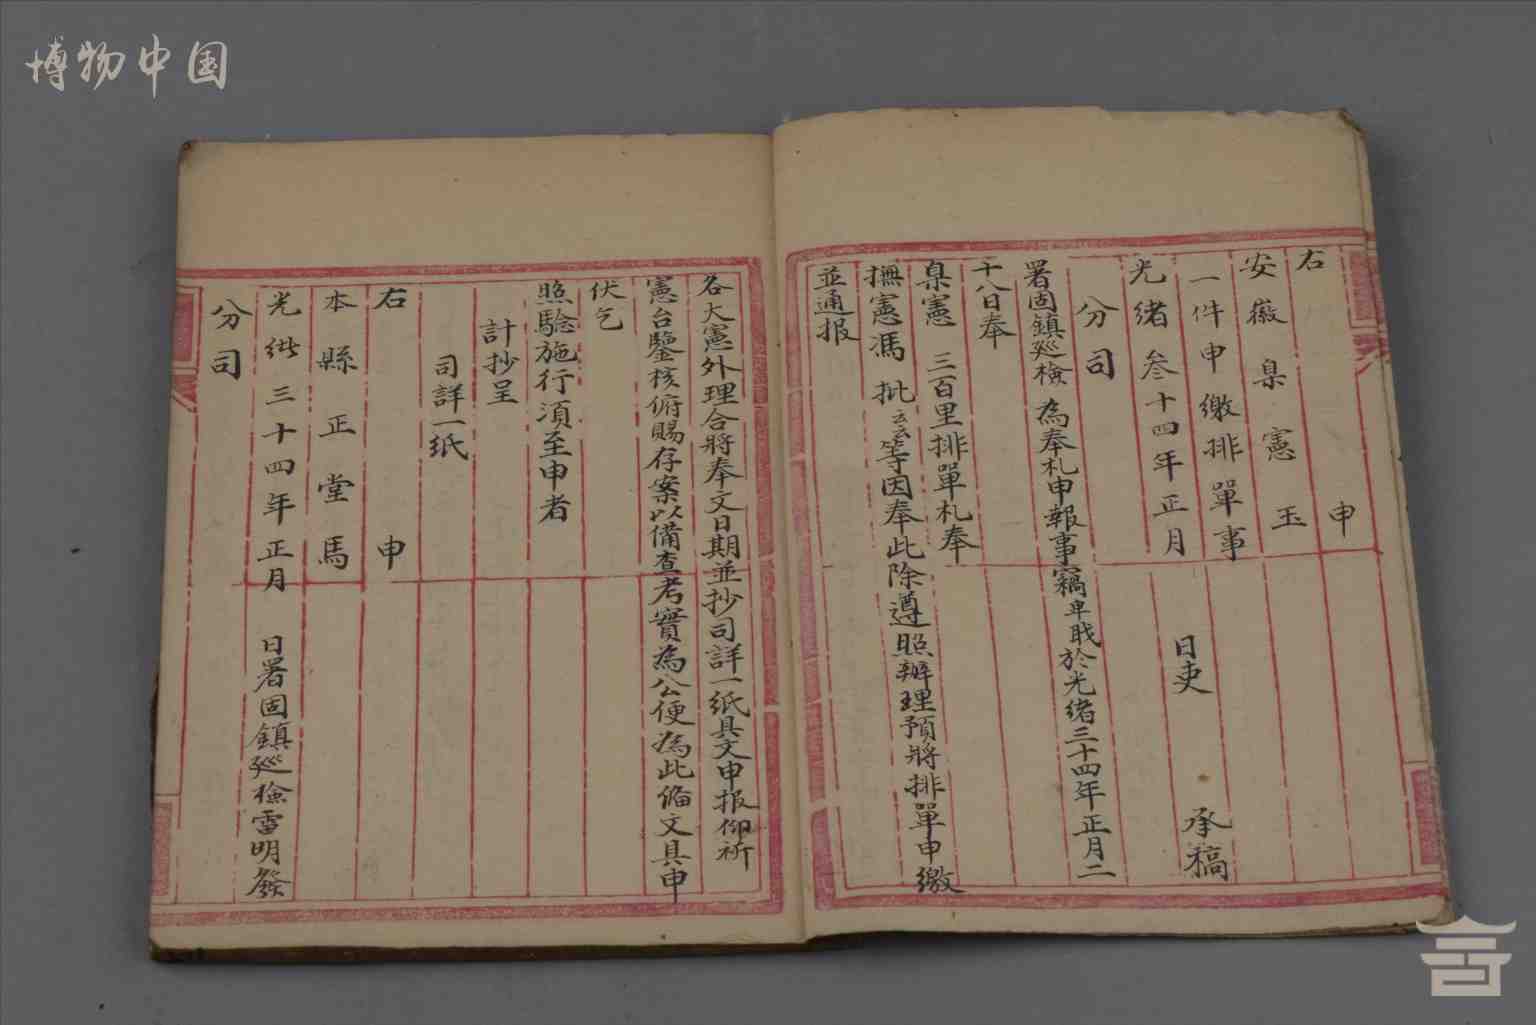 博物中国
右 申
安徽臬憲 玉
一件申繳排單事
光緒叁十四年正月 日吏 承稿
分司
署固鎮廵檢 為奉札申報事竊卑戝於光緒三十四年正月二
十八日奉
臬憲 三百里排單札奉
撫憲馮 批云云等因奉此除遵照辦理預將排單申繳
並通报
各大憲外理合將奉文日期並抄司詳一紙具文申报仰祈
憲台鑒核俯賜存案以備查考實為公便為此俻文具申
伏乞
照驗施行須至申者
計抄呈
司詳一紙
右 申
本縣正堂馬
光緒三十四年正月 日署固鎮廵檢雷明發
分司